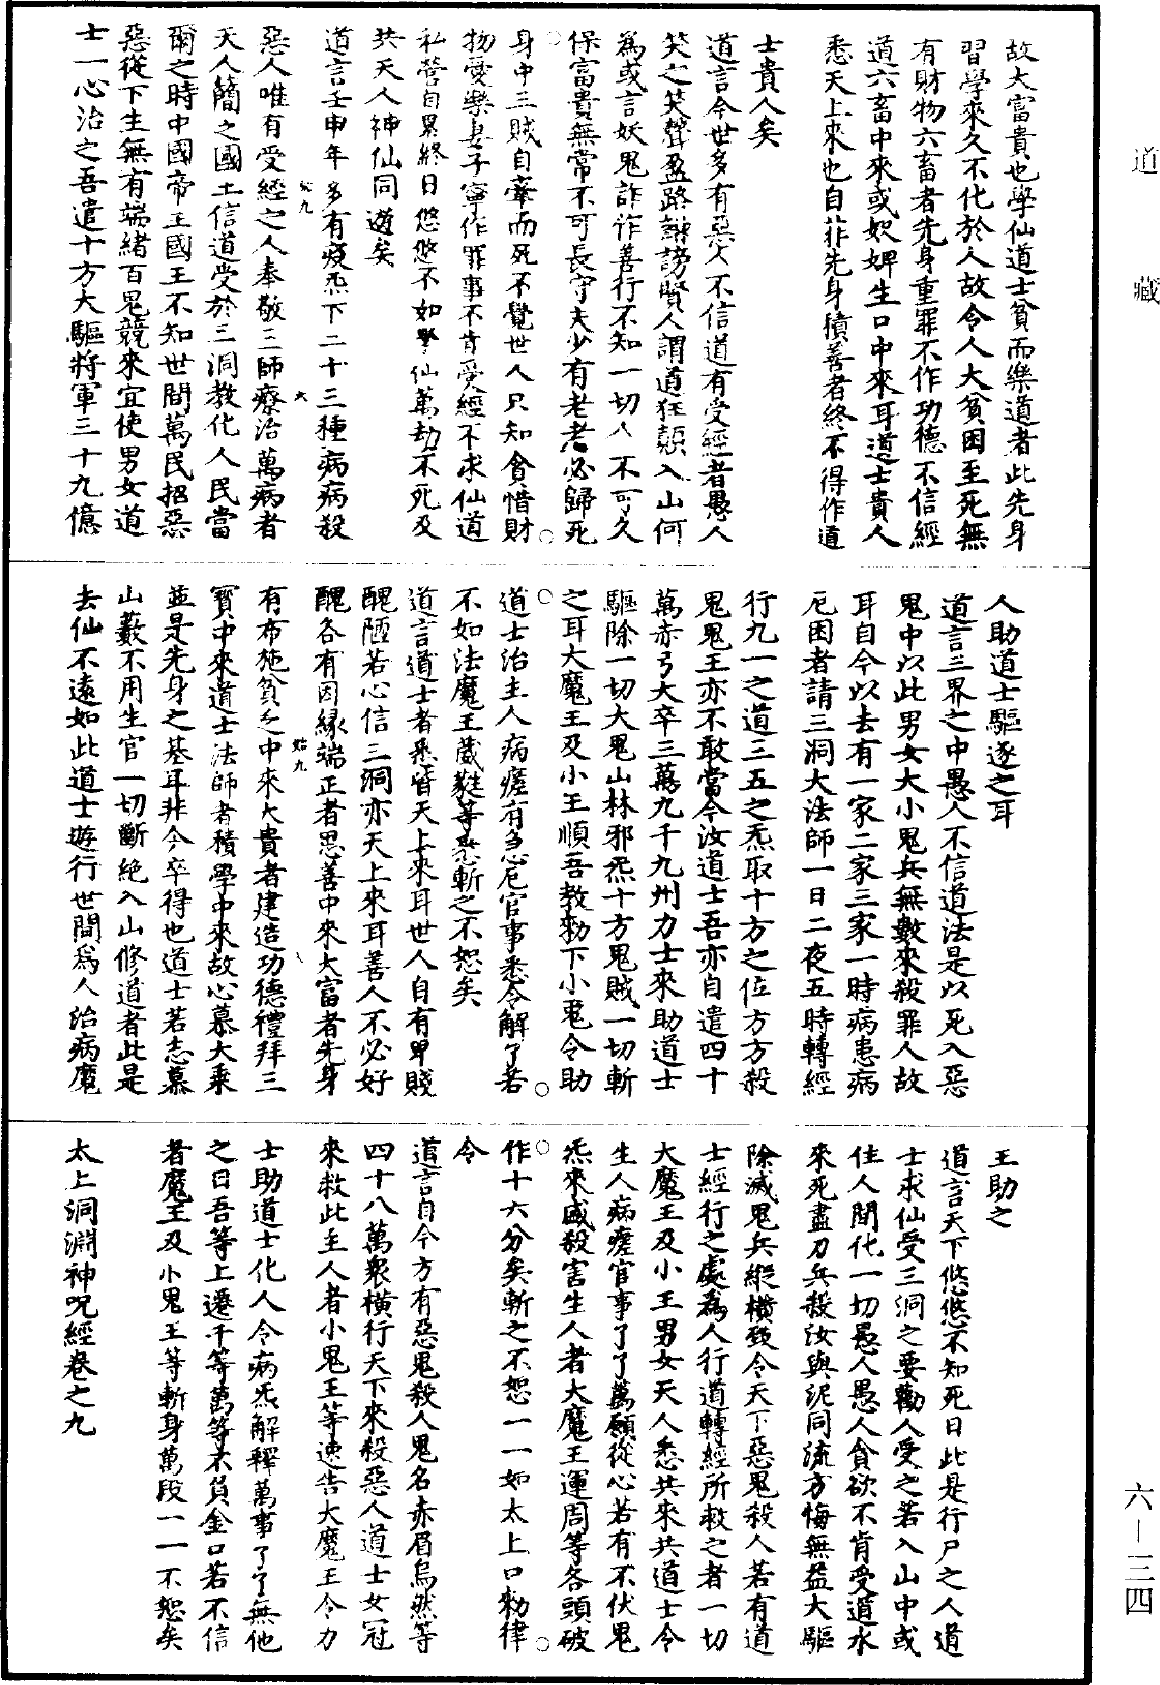 道藏
六—三四
故大富貴也學仙道士貧而樂道者此先身
習學來久不化於人故令人大貧困至死無
有財物六畜者先身重罪不作功德不信經
道六畜中來或奴婢生口中來耳道士貴人
悉天上來也自非先身積善者終不得作道
士貴人矣
道言今世多有惡人不信道有受經者愚人
笑之笑聲盈路誹謗賢人謂道狂顛入山何
為或言妖鬼詐作善行不知一切人不可久
保富貴無常不可長守夫少有老老必歸死
身中三賊自牽而死不覺世人只知貪惜財
物愛樂妻子寧作罪事不肯受經不求仙道
私營自累終日悠悠不如學仙萬劫不死及
共天人神仙同遊矣
道言壬申年多有疫炁下二十三種病病殺
惡人唯有受經之人奉敬三師療治萬病者
天人簡之國土信道受於三洞教化人民當
爾之時中國帝王國王不知世間萬民招惡
惡從下生無有端緒百鬼競來宜使男女道
士一心治之吾遣十方大驅將軍三十九億
人助道士驅逐之耳
道言三界之中愚人不信道法是以死入惡
鬼中以此男女大小鬼兵無數來殺罪人故
耳自今以去有一家二家三家一時病患病
厄困者請三洞大法師一日二夜五時轉經
行九一之道三五之炁取十方之位方方殺
鬼鬼王亦不敢當今汝道士吾亦自遣四十
萬赤弓大卒三萬九千九州力士來助道士
驅除一切大鬼山林邪炁十方鬼賊一切斬
之耳大魔王及小王順吾教勑下小鬼令助
道士治主人病瘥有急厄官事悉令解了若
不如法魔王葳㽔等悉斬之不恕矣
道言道士者悉皆天上來耳世人自有卑賤
醜陋若心信三洞亦天上來耳善人不必好
醜各有因緣端正者忍善中來大富者先身
有布施貧乏中來大貴者建造功德禮拜三
寶中來道士法師者積學中來故心慕大乘
並是先身之基耳非今卒得也道士若志慕
山藪不用生官一切斷絕入山修道者此是
去仙不遠如此道士遊行世間為人治病魔
王助之
道言天下悠悠不知死日此是行尸之人道
士求仙受三洞之要勸人受之若入山中或
住人間化一切愚人愚人貪欲不肯受道水
來死盡刀兵殺汝與泥同流方悔無益大驅
除滅鬼兵縱橫致令天下惡鬼殺人若有道
士經行之處為人行道轉經所救之者一切
大魔王及小王男女天人悉共來共道士令
生人病瘥官事了了萬願從心若有不伏鬼
炁來威殺害生人者大魔王運周等各頭破
作十六分矣斬之不恕一一如太上口勑律
令
道言自今方有惡鬼殺人鬼名赤眉烏然等
四十八萬眾橫行天下來殺惡人道士女冠
來救此主人者小鬼王等速告大魔王令力
士助道士化人令病炁解釋萬事了了無他
之日吾等上遷千等萬等不負金口若不信
者魔王及小鬼王等斬身萬段一一不恕矣
太上洞淵神呪經卷之九